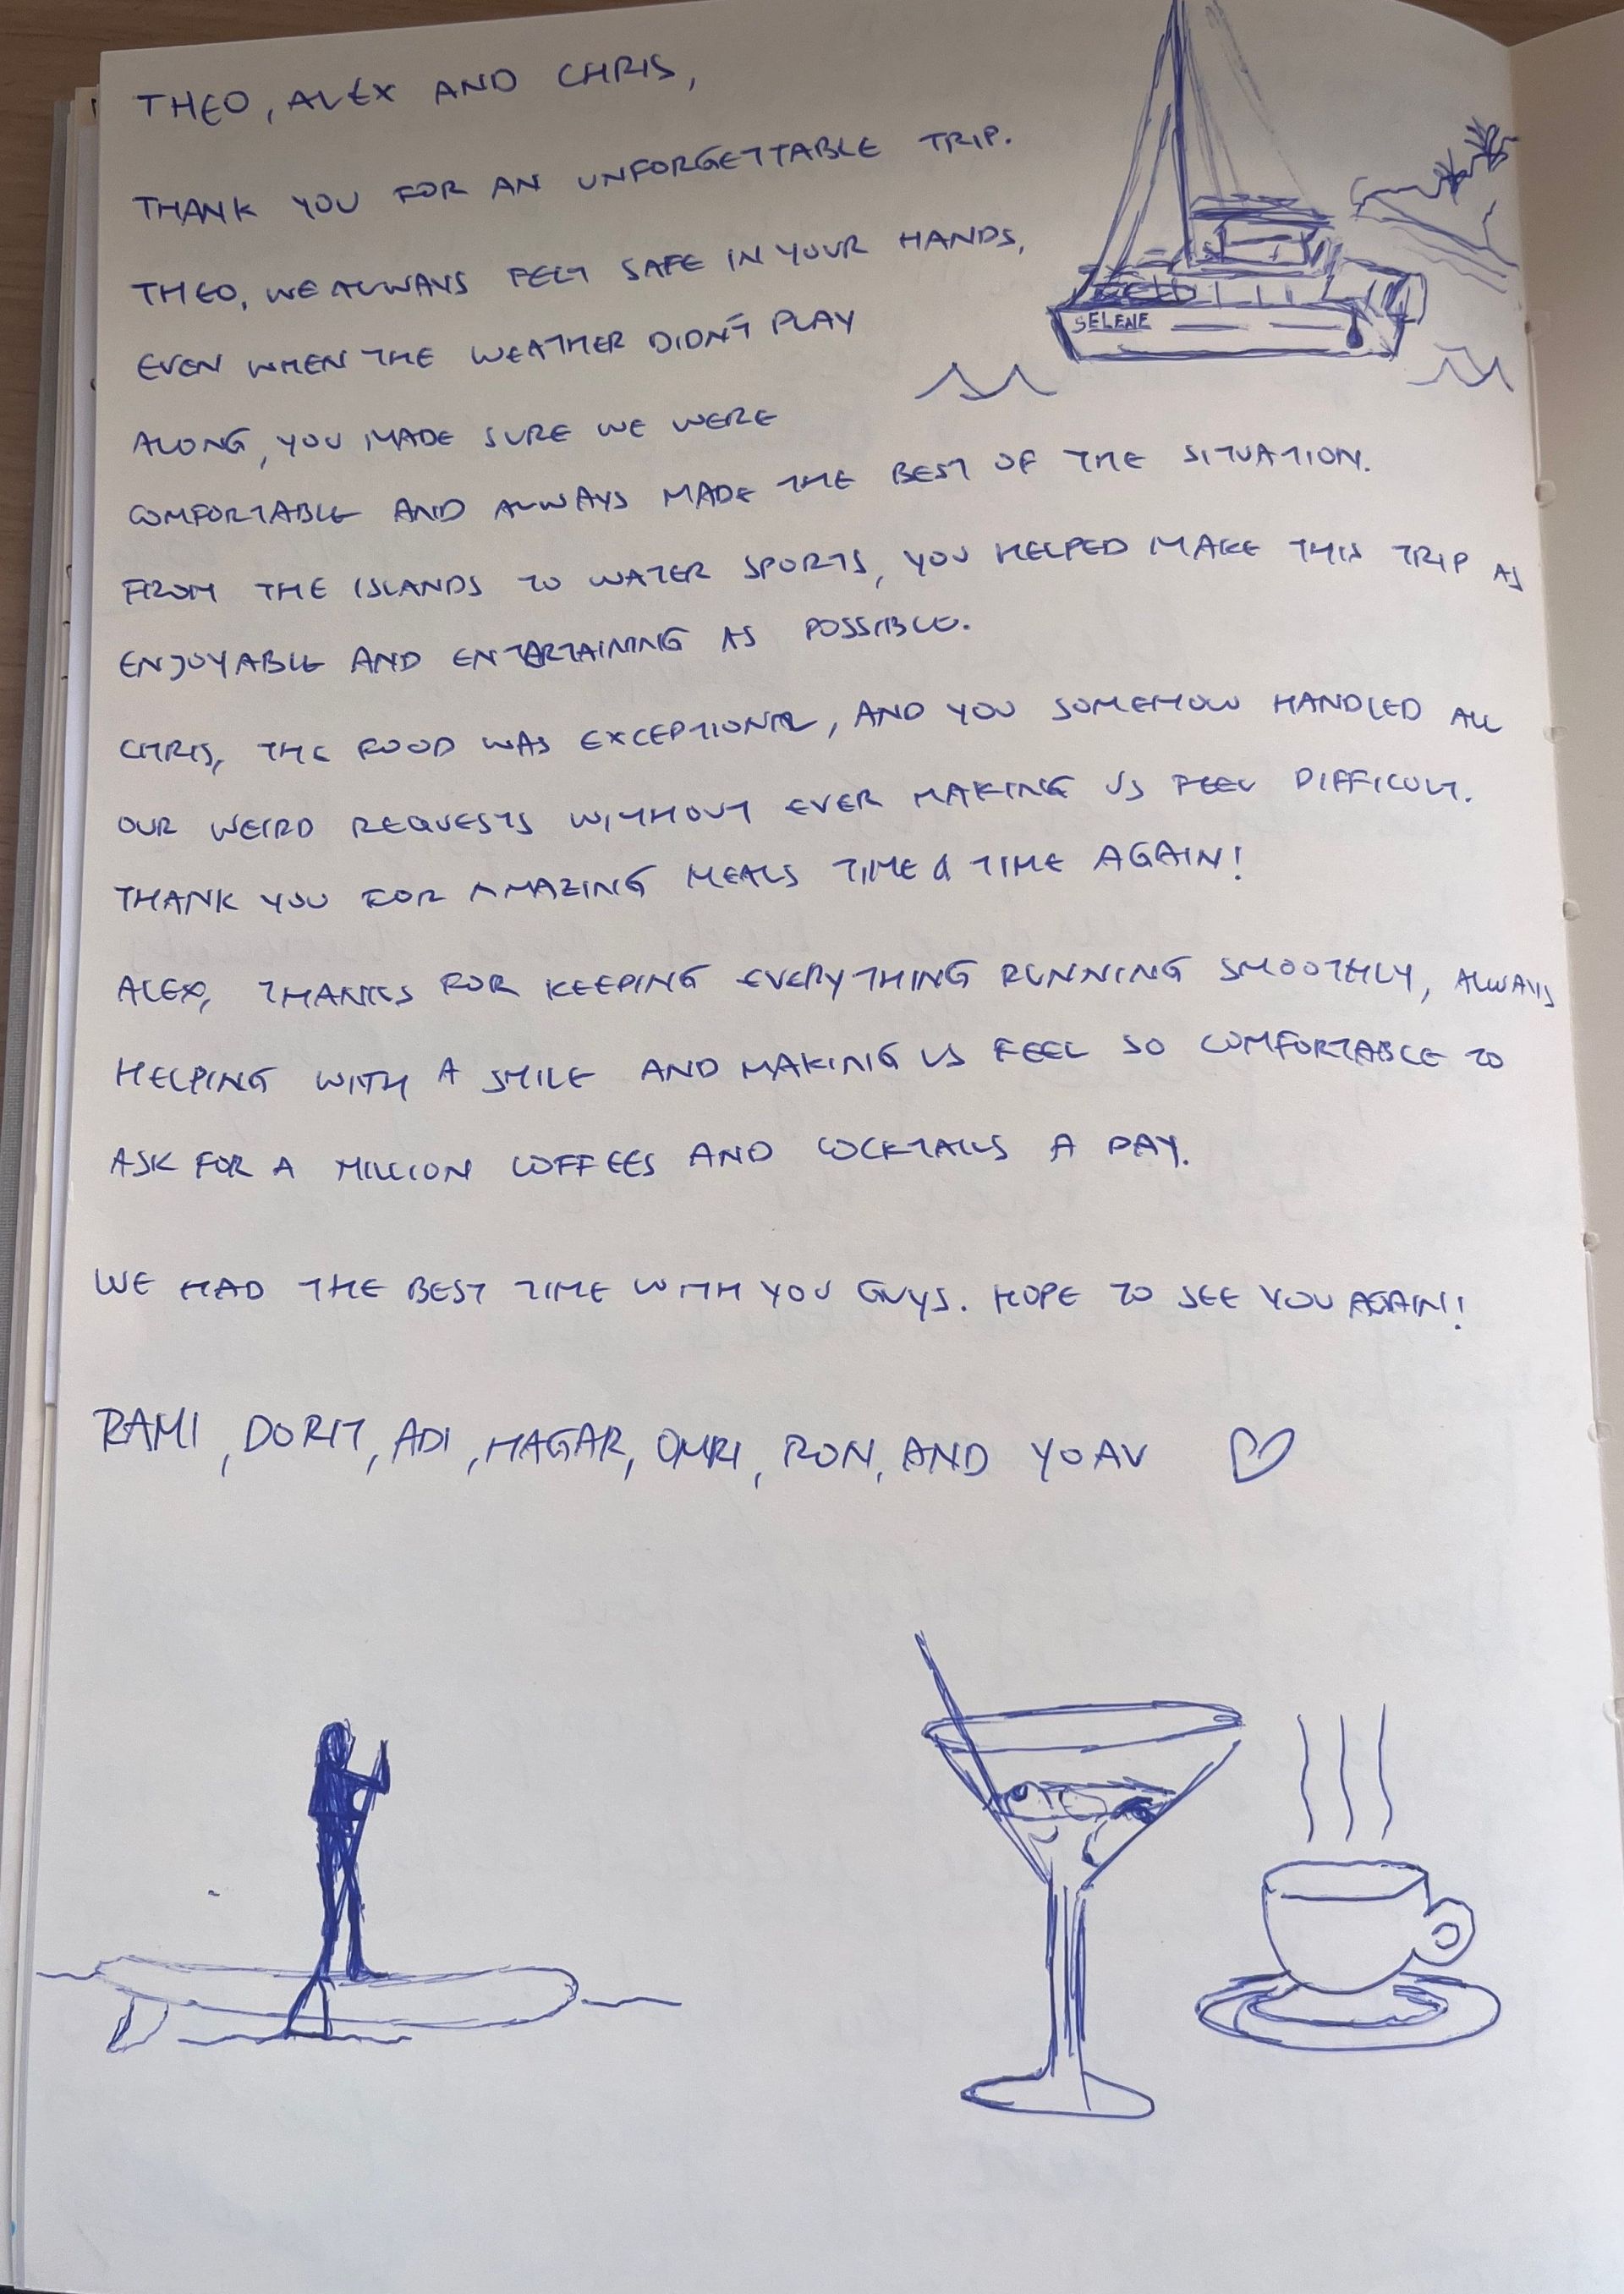 THEO, ALEX AND CHRIS,
THANK YOU FOR AN UNFORGETTABLE TRIP.
THEO, WE ALWAYS FELT SAFE IN YOUR HANDS,
EVEN WHEN THE WEATHER DIDN'T PLAY
SELENE
ALONG, YOU MADE SURE WE WERE
COMFORTABLE AND ALWAYS MADE THE BEST OF THE SITUATION.
FROM THE ISLANDS TO WATER SPORTS, YOU HELPED MAKE THIS TRIP AS
ENJOYABLE AND ENTERTAINING AS POSSIBLE.
CHRIS, THE FOOD WAS EXCEPTIONAL, AND YOU SOMEHOW HANDLED ALL
OUR WEIRD REQUESTS WITHOUT EVER MAKING US FEEL DIFFICULT.
THANK YOU FOR AMAZING MEALS TIME & TIME AGAIN!
ALEX, THANKS FOR KEEPING EVERYTHING RUNNING SMOOTHLY, ALWAYS
HELPING WITH A SMILE AND MAKING US FEEL SO COMFORTABLE TO
ASK FOR A MILLION COFFEES AND COCKTAILS A DAY.
WE HAD THE BEST TIME WITH YOU GUYS. HOPE TO SEE YOU AGAIN!
RAMI, DORIT, ADI, HAGAR, OMRI, RON, AND YOAV ♡